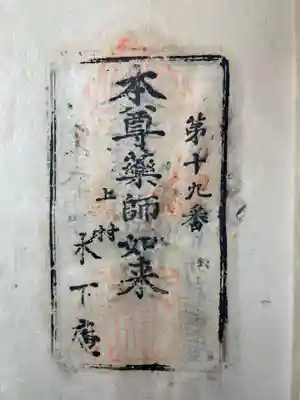 第十九番
本尊薬師如来
上村
永下庵